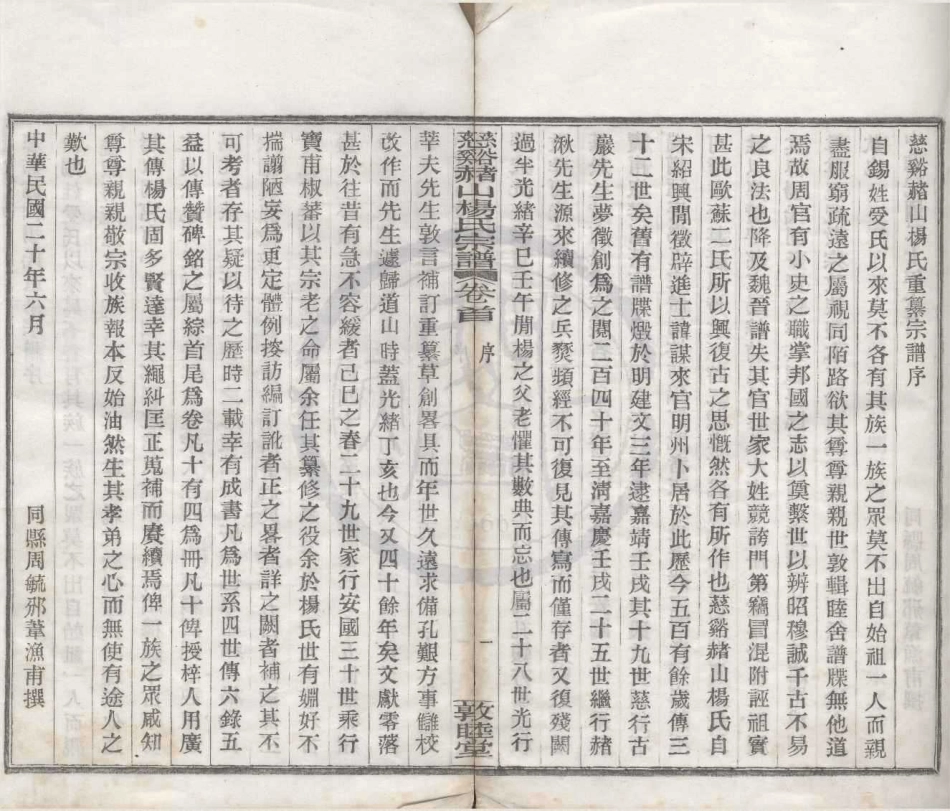 慈谿赭山楊氏重纂宗譜序
自錫姓受氏以來莫不各有其族一族之眾莫不出自始祖一人而親
盡服窮疏遠之屬視同陌路欲其尊尊親親世敦輯睦舍譜牒無他道
焉故周官有小史之職掌邦國之志以奠繫世以辨昭穆誠千古不易
之良法也降及魏晉譜失其官世家大姓競誇門第竊冒混附誣祖實
甚此歐蘇二氏所以興復古之思慨然各有所作也慈谿赭山楊氏自
宋紹興間徵辟進士諱謀來官明州卜居於此歷今五百有餘歲傳三
十二世矣舊有譜牒燬於明建文三年逮嘉靖壬戌其十九世慈行古
巖先生夢徵創爲之閱二百四十年至淸嘉慶壬戌二十五世繼行赭
湫先生源來續修之兵燹頻經不可復見其傳寫而僅存者又復殘闕
過半光緒辛巳壬午間楊之父老懼其數典而忘也屬二十八世光行
慈谿赭山楊氏宗譜 卷之首 序 一 敦睦堂
莘夫先生敦言補訂重纂草創畧具而年世久遠求備孔艱方事讎校
改作而先生遽歸道山時蓋光緒丁亥也今又四十餘年矣文獻零落
甚於往昔有急不容緩者己巳之春二十九世家行安國三十世乘行
寶甫椒蕃以其宗老之命屬余任其纂修之役余於楊氏世有婣好不
揣譾陋妄爲更定體例按訪編訂訛者正之畧者詳之闕者補之其不
可考者存其疑以待之歷時二載幸有成書凡爲世系四世傳六錄五
益以傳贊碑銘之屬綜首尾爲卷凡十有四爲冊凡十俾授梓人用廣
其傳楊氏固多賢達幸其繩糾匡正蒐補而賡續焉俾一族之眾咸知
尊尊親親敬宗收族報本反始油然生其孝弟之心而無使有途人之
歎也
中華民國二十年六月 同縣周毓邠葦漁甫撰